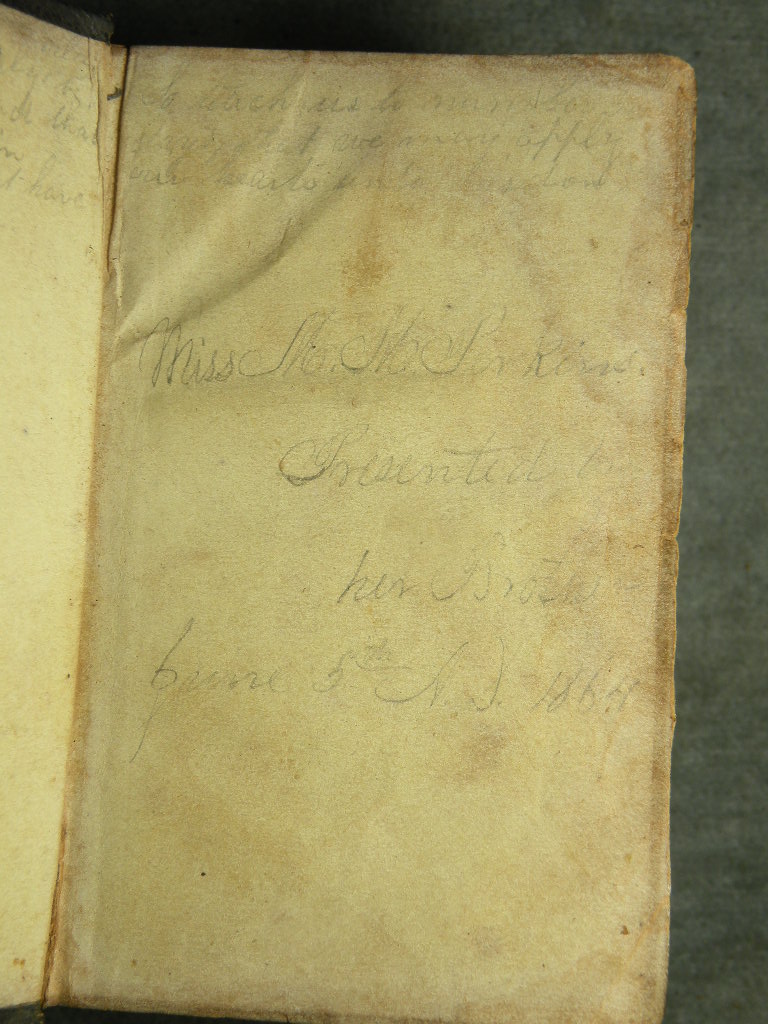 So teach us to number
days that we may apply
our hearts unto wisdom
have
Miss M. M. Perkins.
Presented by
her Brother
June 5th N. J. 1864